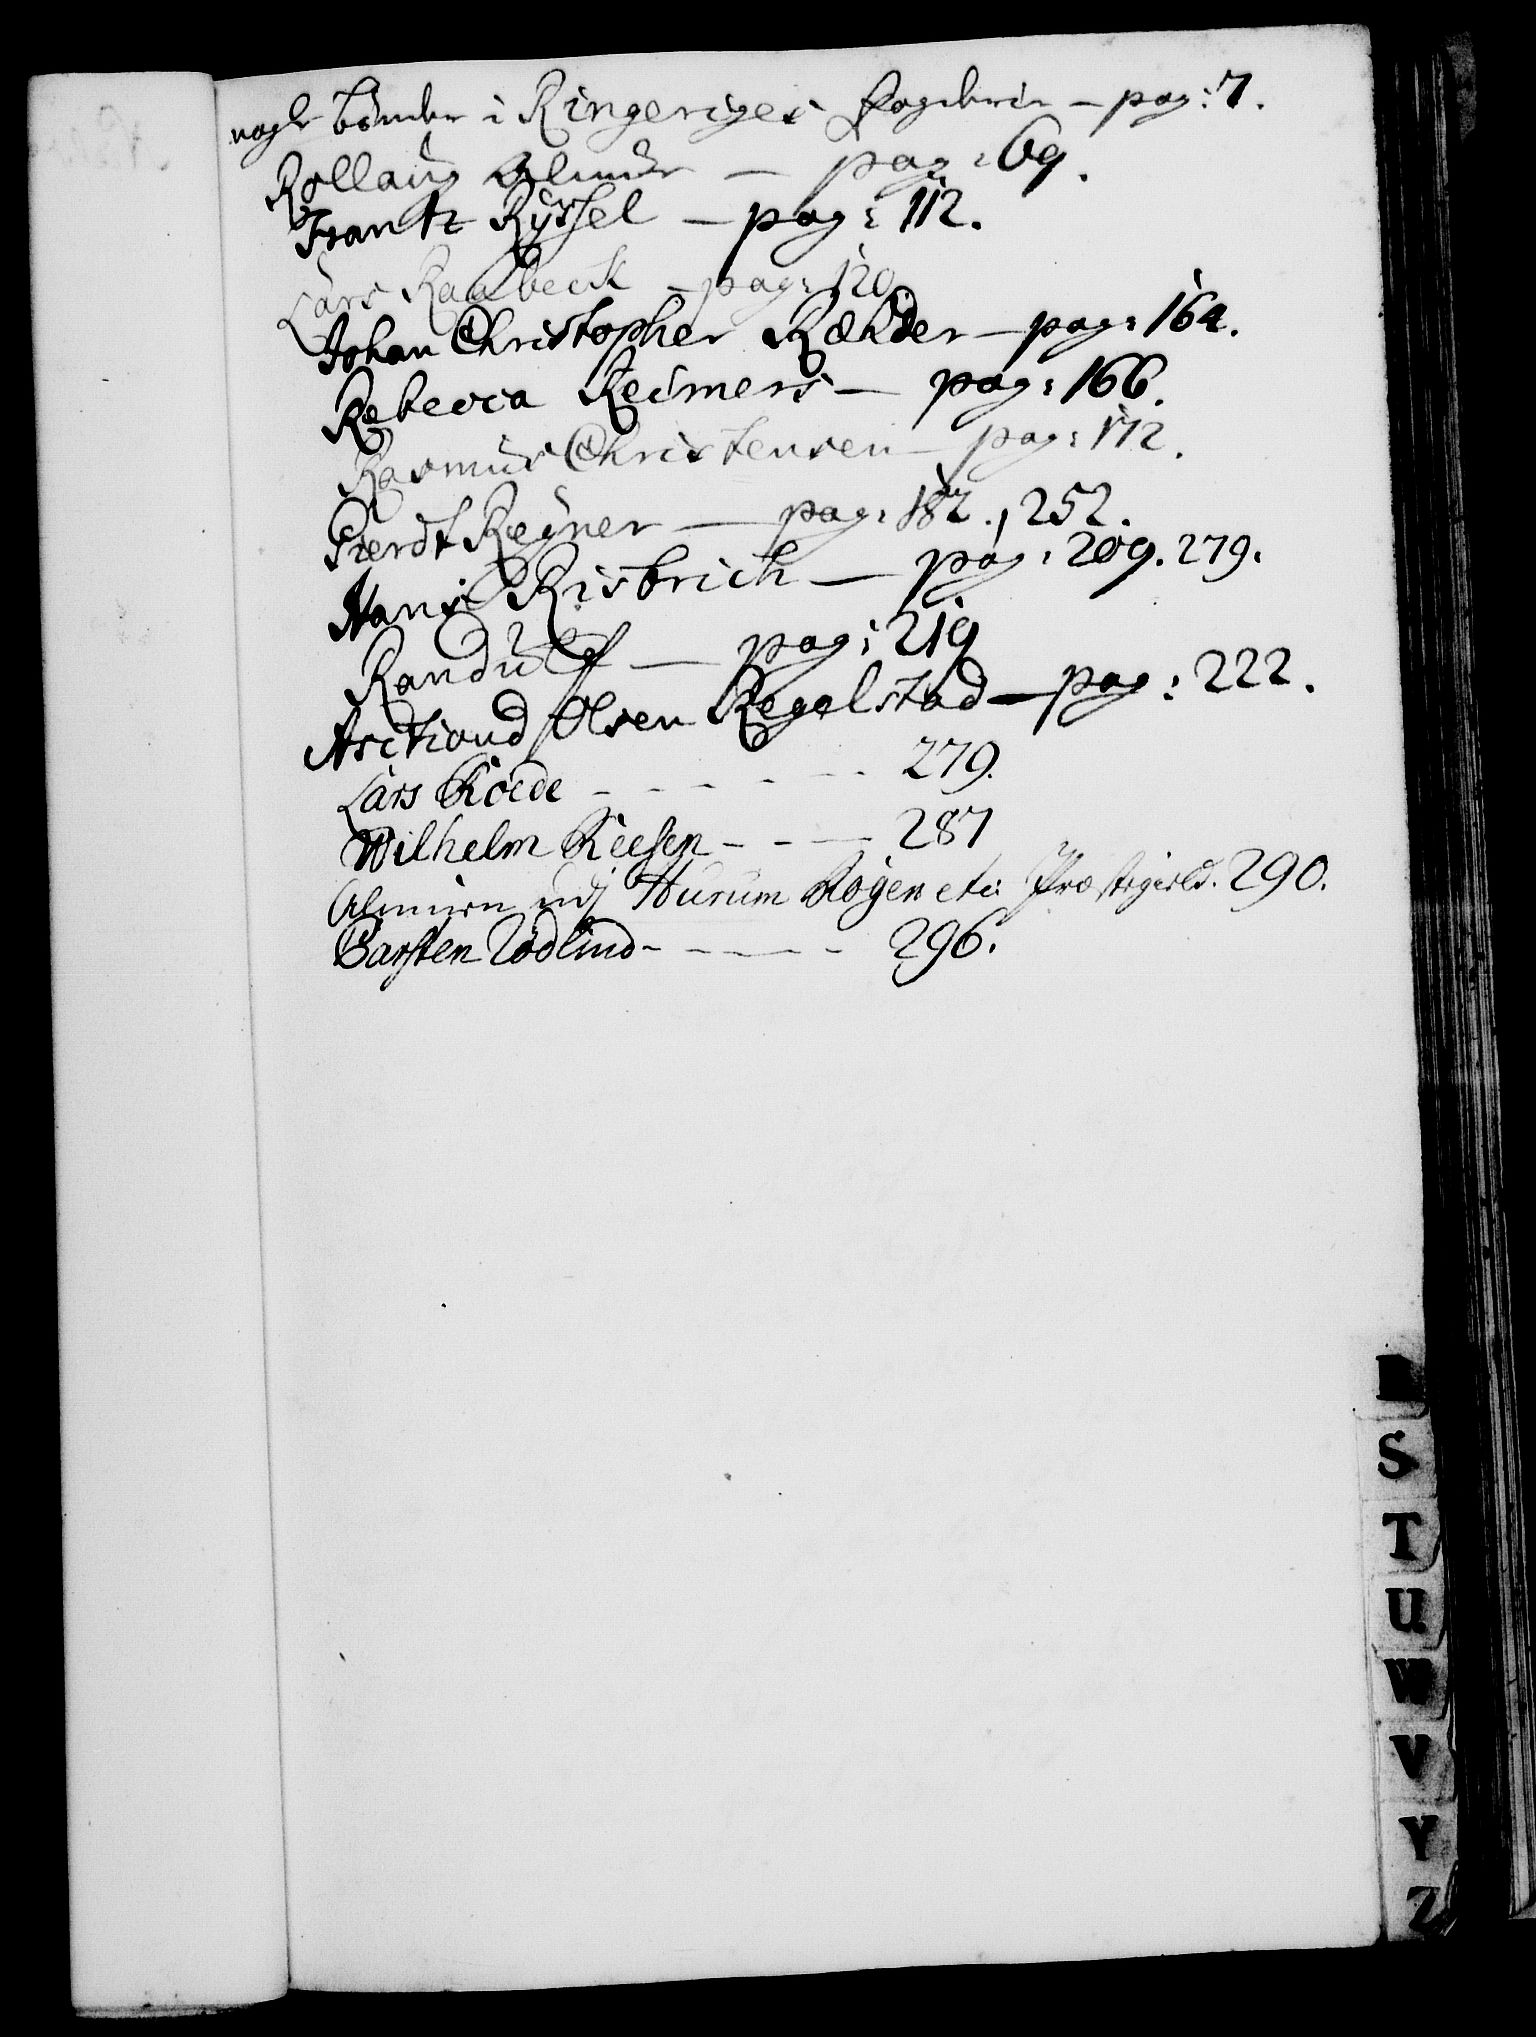 nogle bönder i Ringeriges Fogderie - pag: 7.
Rollaug Almue - pag: 69.
Frantz Ryssel - pag: 112.
Lars Raabeck - pag: 120
Johan Christopher Ræhder - pag: 164.
Rebecca Reimers - pag: 166.
Rasmus Christensen - pag: 172.
Gierdt Regner - pag: 182., 252.
Hans Risbrich - pag: 209. 279.
Randulf - pag: 219
Olsen Regelstad - pag: 222.
Lars Röede - - - - - 279.
Wilhelm Reesen - - - 287
Almuen udj Hurum Röyen etc: Præstegield. 290.
Carsten Rödlind - - - - 296.
S
T
U
W
V
Y
Z